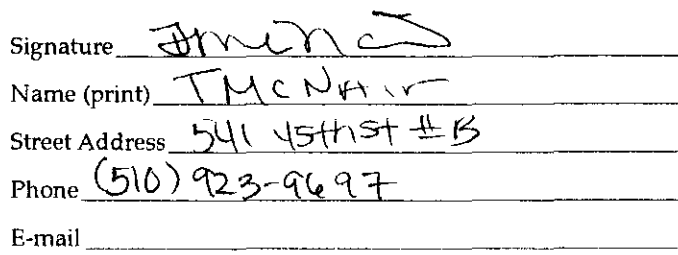 Signature
Name (print) T McNair
Street Address 541 45th st #B
Phone (510) 923-9697
E-mail